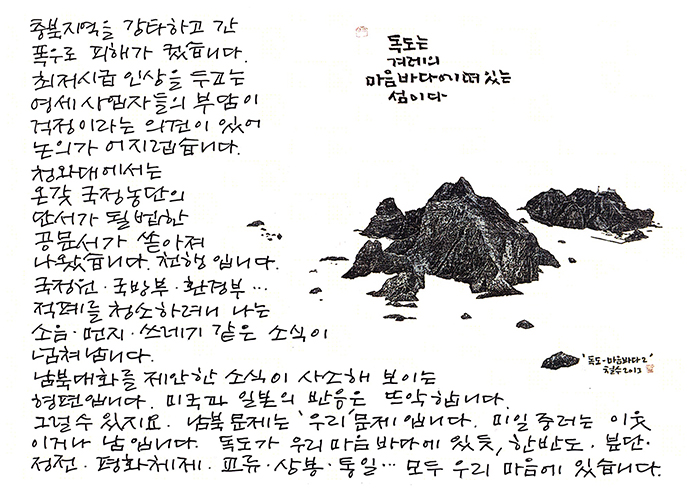 충북지역을 강타하고 간
폭우로 피해가 컸습니다.
최저시급 인상을 두고는
영세사업자들의 부담이
걱정이라는 의견이 있어
논의가 어지럽습니다.
청와대에서는
온갖 국정농단의
단서가 될 법한
공문서가 쏟아져
나왔습니다. 천행입니다.
국정원·국방부·환경부…
적폐를 청소하려니 나는
소음·먼지·쓰레기 같은 소식이
넘쳐납니다.
남북대화를 제안한 소식이 사소해 보이는
형편입니다. 미국과 일본의 반응은 뜨악합니다.
그럴 수 있지요. 남북문제는 '우리' 문제입니다. 미일중러는 이웃
이거나 남입니다. 독도가 우리 마음바다에 있듯, 한반도·분단·
정전·평화체제·교류·상봉·통일… 모두 우리 마음에 있습니다.
독도는
겨레의
마음바다에 떠 있는
섬이다
'독도-마음바다2'
철수 2013